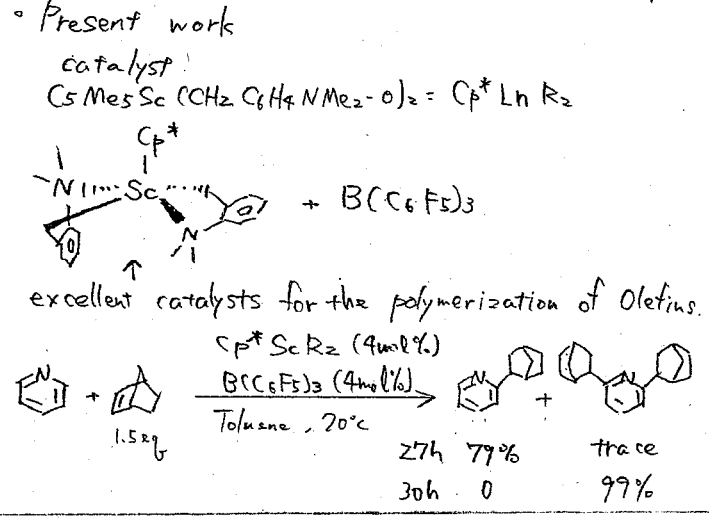 • Present work
catalyst:
C5Me5Sc(CH2C6H4NMe2-o)2 = Cp* Ln R2
Cp*
N Sc
N
+ B(C6F5)3
↑
excellent catalysts for the polymerization of Olefins.
Cp* ScR2 (4mol%)
B(C6F5)3 (4mol%)
N + 1.5eq
Toluene, 20°c
N + N
27h 79% trace
30h 0 99%